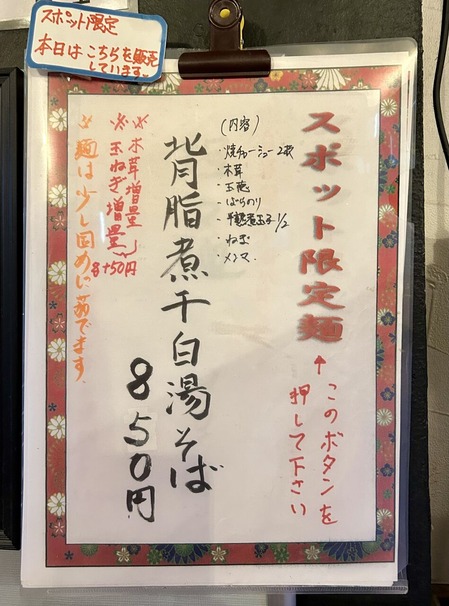 スポット限定
本日はこちらを販売
しています。
スポット限定麺
↑このボタンを
押して下さい
(内容)
・焼チャーシュー2枚
・木茸
・玉葱
・ばらのり
・半熟煮玉子1/2
・ねぎ
・メンマ
背脂煮干白湯そば
850円
※木茸増量
※玉ねぎ増量
各+50円
麺は少し固めに茹でます。